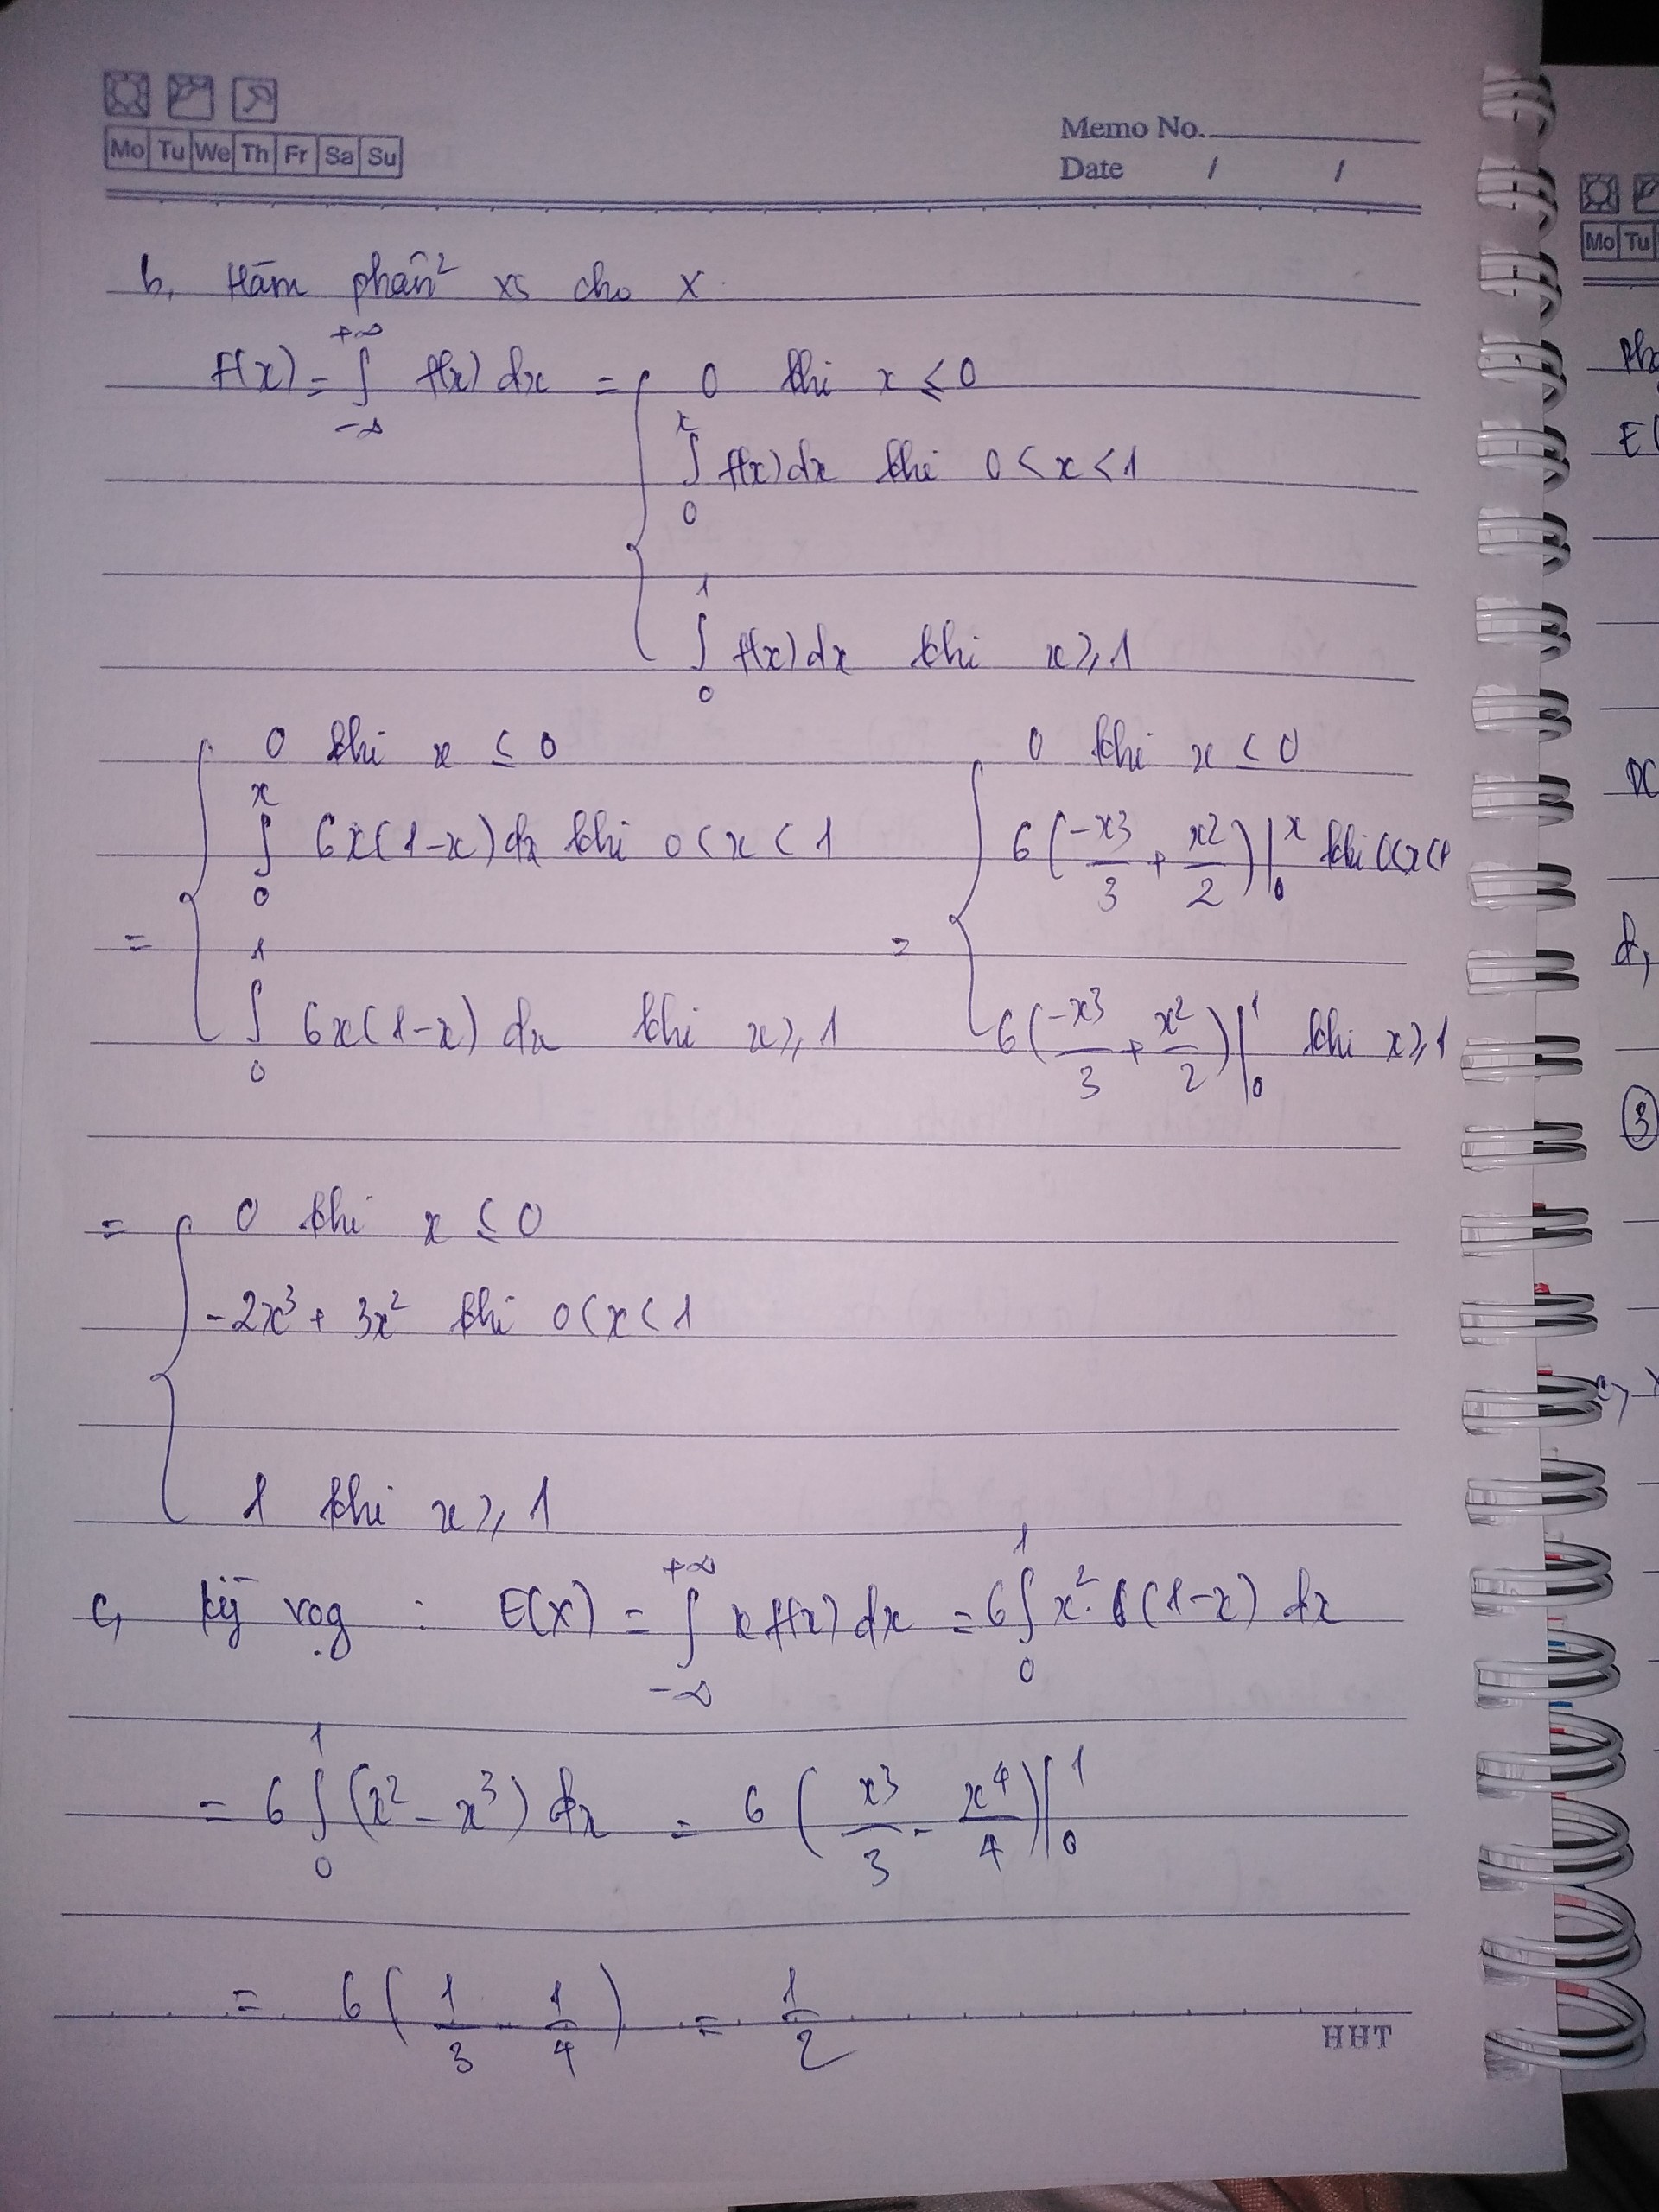 Mo Tu We Th Fr Sa Su
Memo No.
Date / /
b, Hàm phân² xs cho X
F(x) = ∫_{-∞}^{+∞} f(x) dx = { 0 khi x ≤ 0
∫_0^x f(x) dx khi 0 < x < 1
∫_0^1 f(x) dx khi x ≥ 1
= { 0 khi x ≤ 0
∫_0^x 6x(1-x) dx khi 0 < x < 1
∫_0^1 6x(1-x) dx khi x ≥ 1
= { 0 khi x ≤ 0
6(-x3/3 + x2/2)|_0^x khi 0<x<1
6(-x3/3 + x²/2)|_0^1 khi x ≥ 1
= { 0 khi x ≤ 0
-2x³ + 3x² khi 0 < x < 1
1 khi x ≥ 1
c, kỳ vọg : E(X) = ∫_{-∞}^{+∞} x f(x) dx = 6∫_0^1 x². (1-x) dx
= 6 ∫_0^1 (x² - x³) dx = 6 (x3/3 - x⁴/4)|_0^1
= 6 (1/3 - 1/4) = 1/2
HHT
Mo Tu
E(
d,
3